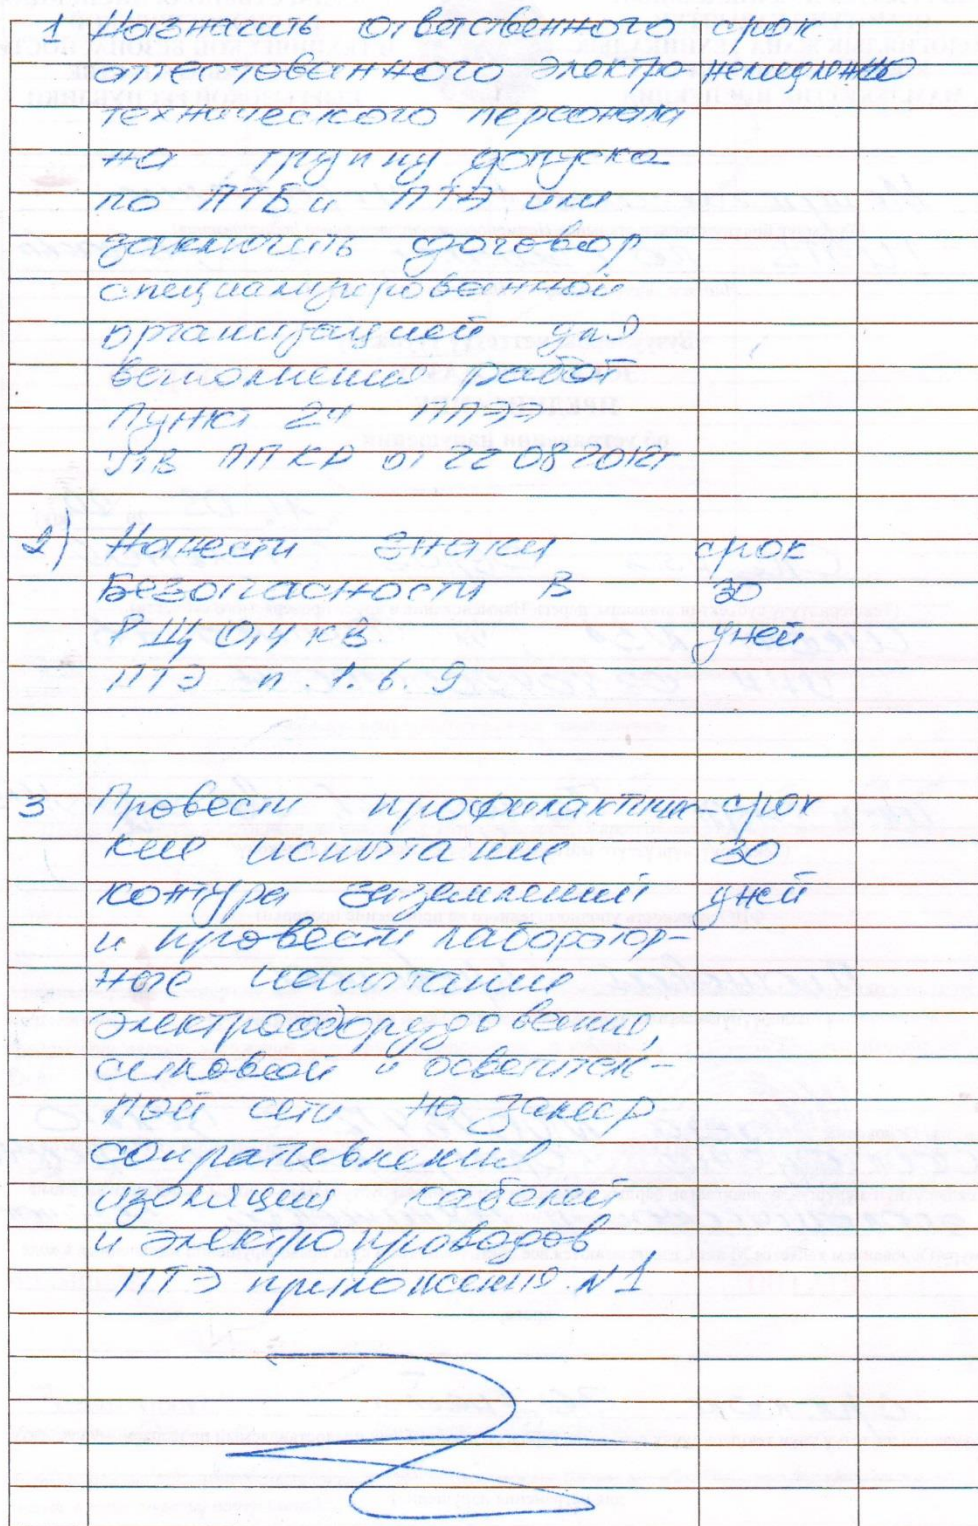 1 Назначить ответственного срок
аттестованного электро- немедленно
технического персонала
на группу допуска
по ПТБ и ПТЭ или
заключить договор
специализированной
организацией для
выполнения работ
Пункт 24 ППЭЭ
Утв ППКР от 22 08 2012г
2) Нанести знаки срок
Безопасности в 30
РЩ 0,4 кв. дней
ПТЭ п. 1. 6. 9
3 Провести профилактичес- срок
кие испытание 30
контура заземлений дней
и провести лаборатор-
ные испытание
электрооборудование,
силовой и осветитель-
ной сети на замер
сопративления
изоляции кабелей
и электропроводов
ПТЭ приложение N1